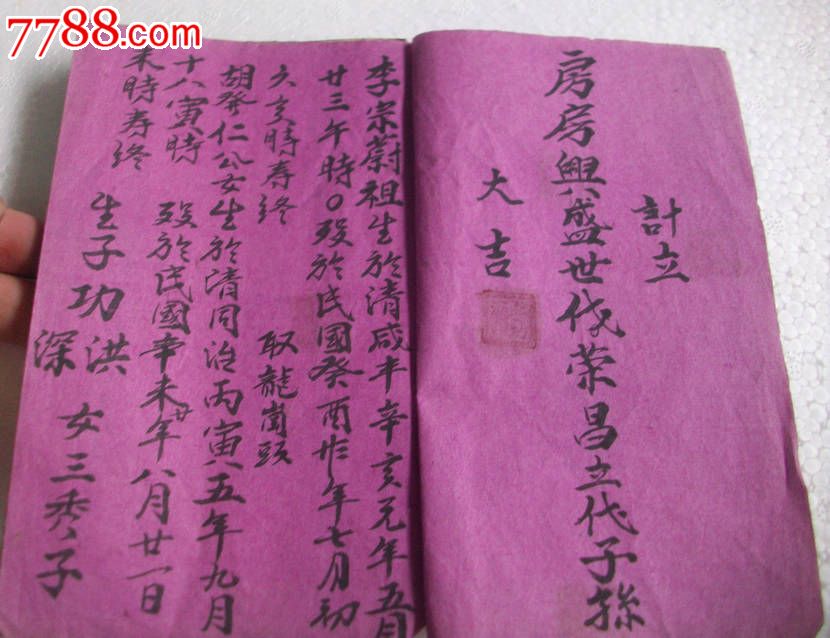 7788.com
計立
房房興盛世代荣昌立代子孫
大吉
李宗蔚祖生於清咸丰辛亥元年五月
廿三午時○殁於民國癸酉廿年七月初
六亥時寿终 取龍崗頭
胡癸仁公女生於清同治丙寅八五年九月
十八寅時 殁於民國辛未廿年八月廿一日
未時寿终
生子功洪深 女三秀子